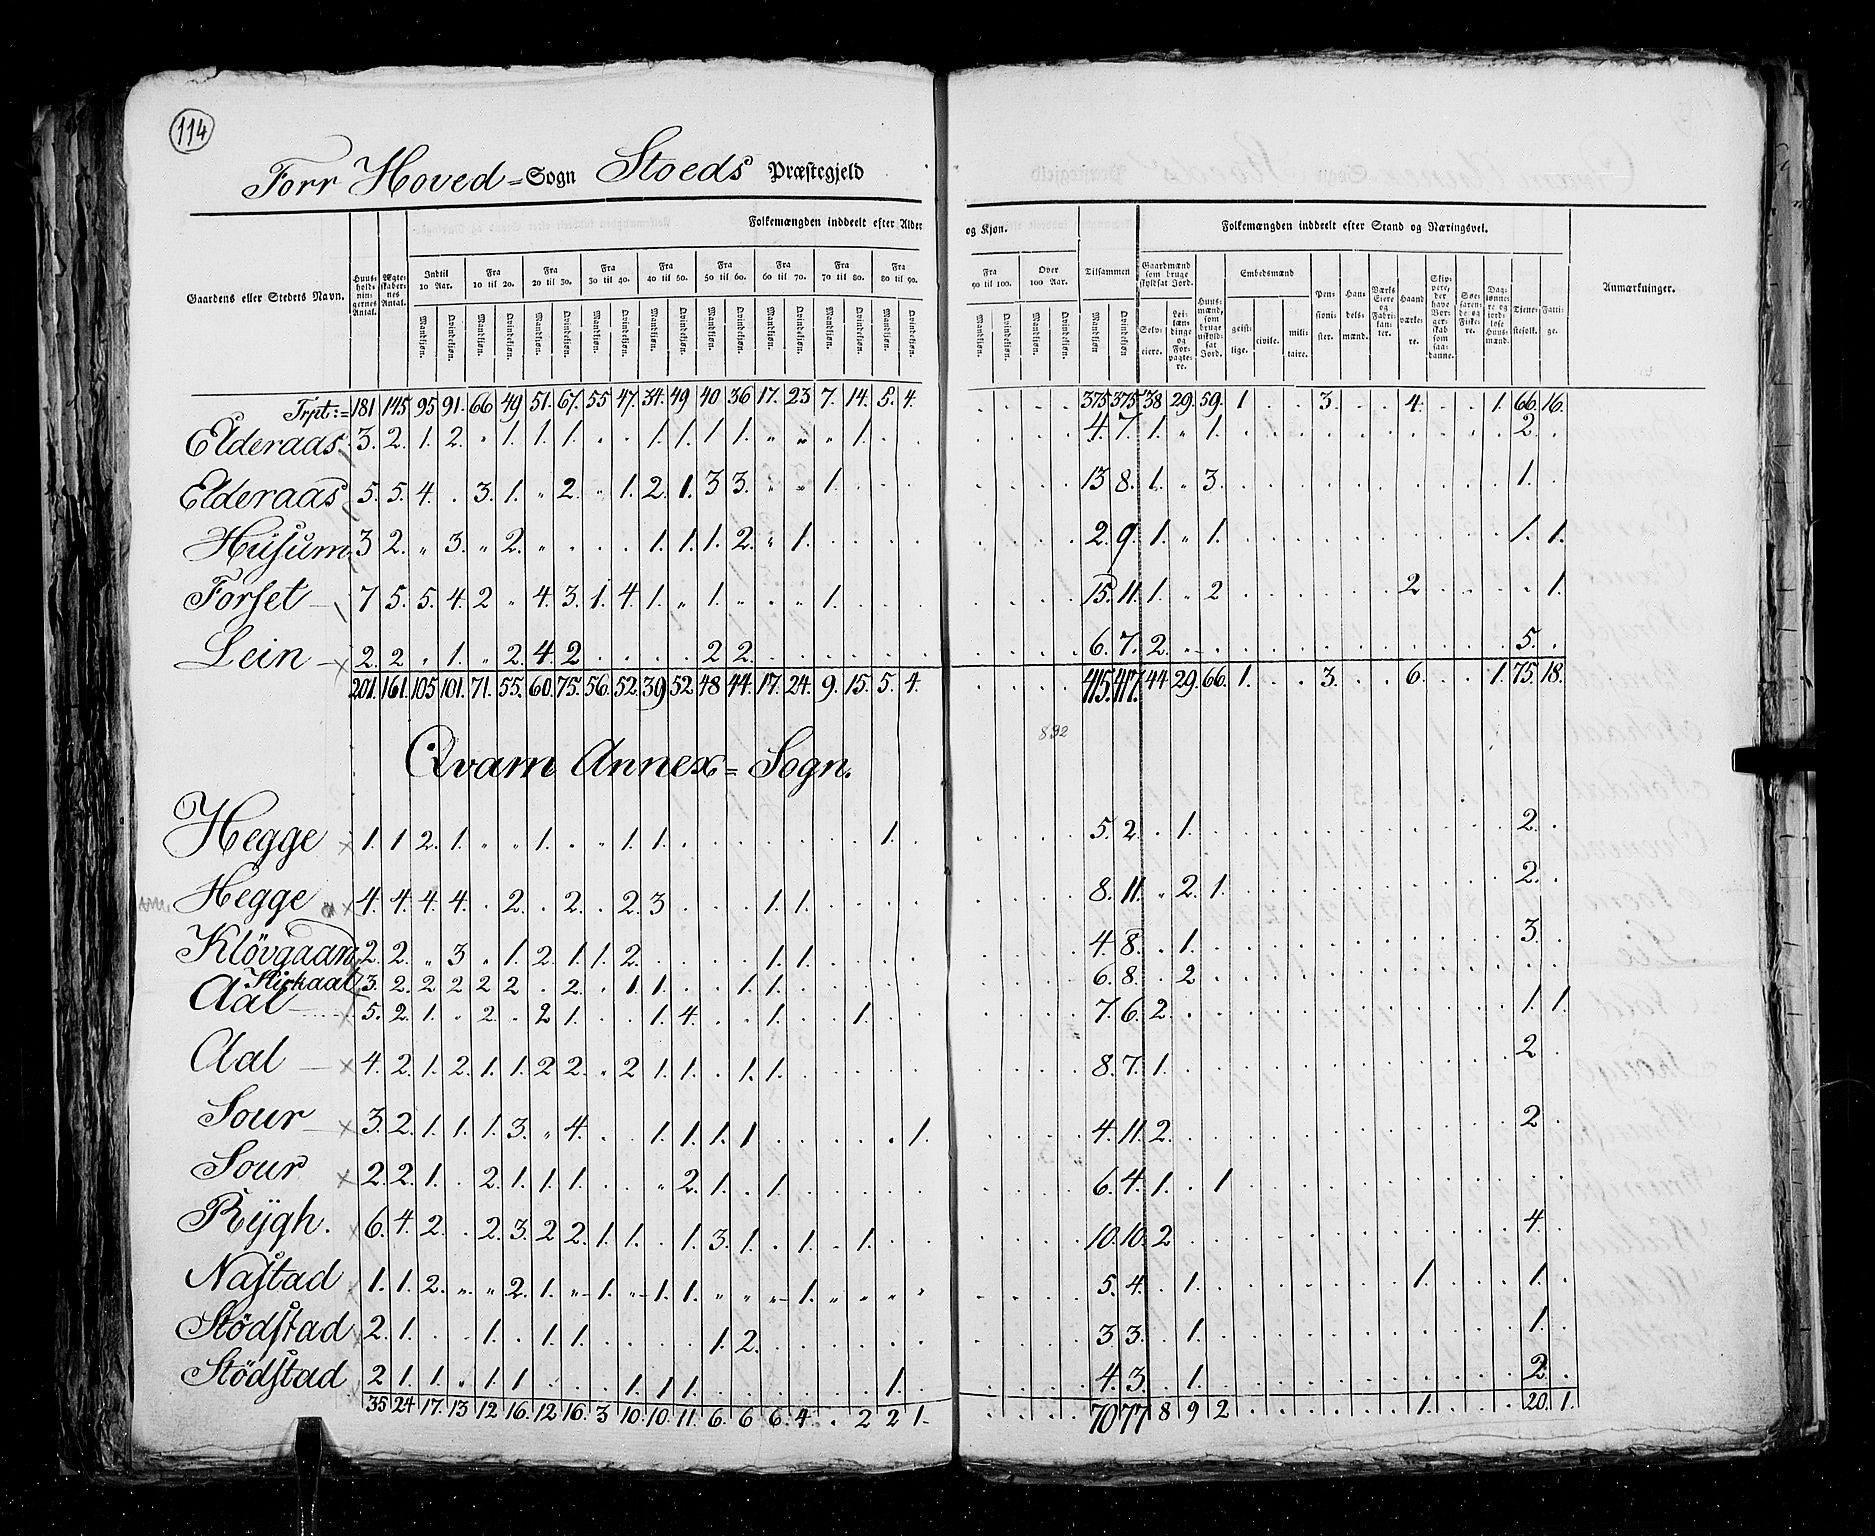 114
Forr Hoved=Sogn Stoeds Præstegjeld
Folkemængden inddeelt efter Alder og Kjøn. Folkemængden inddeelt efter Stand og Næringsvei.
Gaardens eller Stedets Navn. Huusholdningernes Antal. Ægteskabernes Antal. Indtil 10 Aar. Fra 10 til 20. Fra 20 til 30. Fra 30 til 40. Fra 40 til 50. Fra 50 til 60. Fra 60 til 70. Fra 70 til 80. Fra 80 til 90. Fra 90 til 100. Over 100 Aar. Tilsammen Gaardmænd som bruge skyldsat Jord. Huusmænd, som bruge uskyldsat Jord. Embedsmænd Pensionister. Handelsmænd. Værks Eiere og Fabrikanter. Haandværkere. Skippere, der have Borgerskab som saadanne. Søefarende og Fiskere. Daglønnere og jordløse Huusmænd. Tjenestefolk. Fattige. Anmærkninger.
Mandkjøn. Qvindekjøn. Selveiere. Leilændinge og Forpagtere. geistlige. civile. militaire.
Trpt:= 181 145 95 91. 66 49 51. 67. 55 47. 34. 49 40 36 17. 23 7. 14. 5. 4. 375 375 38 29. 59. 1 . . 3. . . 4. . . 1. 66. 16.
Elderaas. 3. 2. 1. 2. " 1. 1. 1. . . 1. 1. 1. 1. " " " 1. . . 4. 7. 1. " 1. 2. .
Elderaas 5. 5. 4. . 3. 1. " 2. " 1. 2. 1. 3 3. " " 1. . . . 13 8. 1. " 3. 1. .
Husum 3 2. " 3. " 2. " . . . 1. 1. 1. 2. " 1. . . . . 2. 9. 1. " 1. 1. 1.
Forset 7 5. 5. 4. 2 " 4. 3. 1. 4. 1. " 1. " " " 1. . . . 15. 11. 1. " 2 2 . 1.
Lein 2. 2 " 1. " 2. 4. 2 . . . . 2 2. . . . . . . 6. 7. 2. 5. .
201. 161. 105 101. 71. 55. 60. 75. 56. 52. 39 52. 48 44. 17. 24. 9. 15. 5. 4. 415. 417. 44 29. 66. 1. . . 3. . . 6. . . 1. 75. 18.
832
Qvam Annex= Sogn.
Hegge 1. 1 2. 1. " " 1. . " 1. 1. . . . . . . . 1. . 5. 2. . 1. 2. .
Hegge 4. 4. 4. 4. . 2. . 2. . 2. 3 . . . 1. 1. . . . . 8. 11. " 2. 1. 2. .
Klövgaam 2. 2. " 3 " 1. 2. 1. 1. 2. . . . . 1. 1. . . . . 4. 8. . 1. 3. .
Kirkaal 3. 2. 2 2 2 2 . 2. . 1. 1. . . 1. 1. . . . . . 6. 8. . 2
Aal 5. 2. 1. " 2. . 2 1. . . 1. 4. . . 1. . . 1. . . 7. 6. 2. 1. 1.
Aal 4. 2. 1. 2. 1. 1. 2 2. " 2 1. 1. . 1. 1. . . . . . 8. 7. 1. 2 .
Sour 3. 2. 1. 1. 1. 3. " 4. . . 1. 1. 1. 1 . . . . . 1. 4. 11. 2. 2 .
Sour 2. 2. 1. . 2. 1. 1. 1. . . " 2. 1. . 1. . . . . . 6. 4. 1. . 1
Rÿgh. 6. 4. 2. . 2. 3. 2 2. 1. 1. . 1. 3. 1. . 1. . 1. . . 10. 10. 2 4. .
Nastad 1. 1. 2. " " 2. 1. " 1. " 1. 1. " " " 1. " " " " 5. 4. . 1. 1. 1. .
Stödstad 2. 1. . . 1. . 1. 1. . . . . 1. 2. . . . . . . 3. 3. . 1. 1. .
Stödstad 2 1. 1. " 1. 1 . . . 1. 1 1. . . . . . . 1. . 4. 3. . 1. 2. .
35 24 17. 13 12 16. 12 16. 3 10. 10. 11. 6. 6 6. 4. . 2 2 1. 70 77 8 9 2 1. 20. 1.